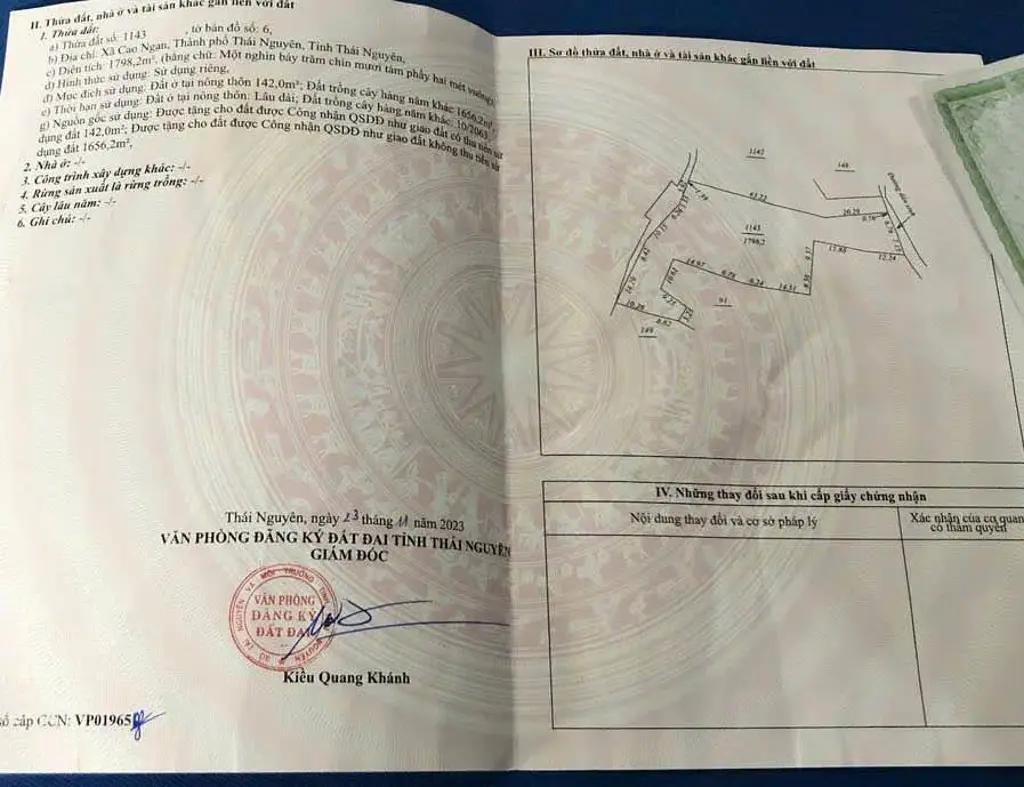 II. Thửa đất, nhà ở và tài sản khác gắn liền với đất
1. Thửa đất:
a) Thửa đất số: 1143 , tờ bản đồ số: 6,
b) Địa chỉ: Xã Cao Ngạn, Thành phố Thái Nguyên, Tỉnh Thái Nguyên,
c) Diện tích: 1798,2m², (bằng chữ: Một nghìn bảy trăm chín mươi tám phẩy hai mét vuông),
d) Hình thức sử dụng: Sử dụng riêng,
đ) Mục đích sử dụng: Đất ở tại nông thôn 142,0m²; Đất trồng cây hàng năm khác 1656,2m²,
e) Thời hạn sử dụng: Đất ở tại nông thôn: Lâu dài; Đất trồng cây hàng năm khác: 10/2063,
g) Nguồn gốc sử dụng: Được tặng cho đất được Công nhận QSDĐ như giao đất có thu tiền sử
dụng đất 142,0m²; Được tặng cho đất được Công nhận QSDĐ như giao đất không thu tiền sử
dụng đất 1656,2m²,
2. Nhà ở: -/-
3. Công trình xây dựng khác: -/-
4. Rừng sản xuất là rừng trồng: -/-
5. Cây lâu năm: -/-
6. Ghi chú: -/-
Thái Nguyên, ngày 23 tháng 11 năm 2023
VĂN PHÒNG ĐĂNG KÝ ĐẤT ĐAI TỈNH THÁI NGUYÊN
GIÁM ĐỐC
VĂN PHÒNG
ĐĂNG KÝ
ĐẤT ĐAI
Kiều Quang Khánh
số cấp GCN: VP01965
III. Sơ đồ thửa đất, nhà ở và tài sản khác gắn liền với đất
1142
148
Đường dân sinh
63.22
20.29
0.78
6.79
7.15
1143
1798,2
9.37
17.88
12.24
10.15
8.42
14.79
14.97
6.78
9.24
14.51
8.50
10.62
9.25
91
10.28
8.62
149
IV. Những thay đổi sau khi cấp giấy chứng nhận
Nội dung thay đổi và cơ sở pháp lý
Xác nhận của cơ quan
có thẩm quyền